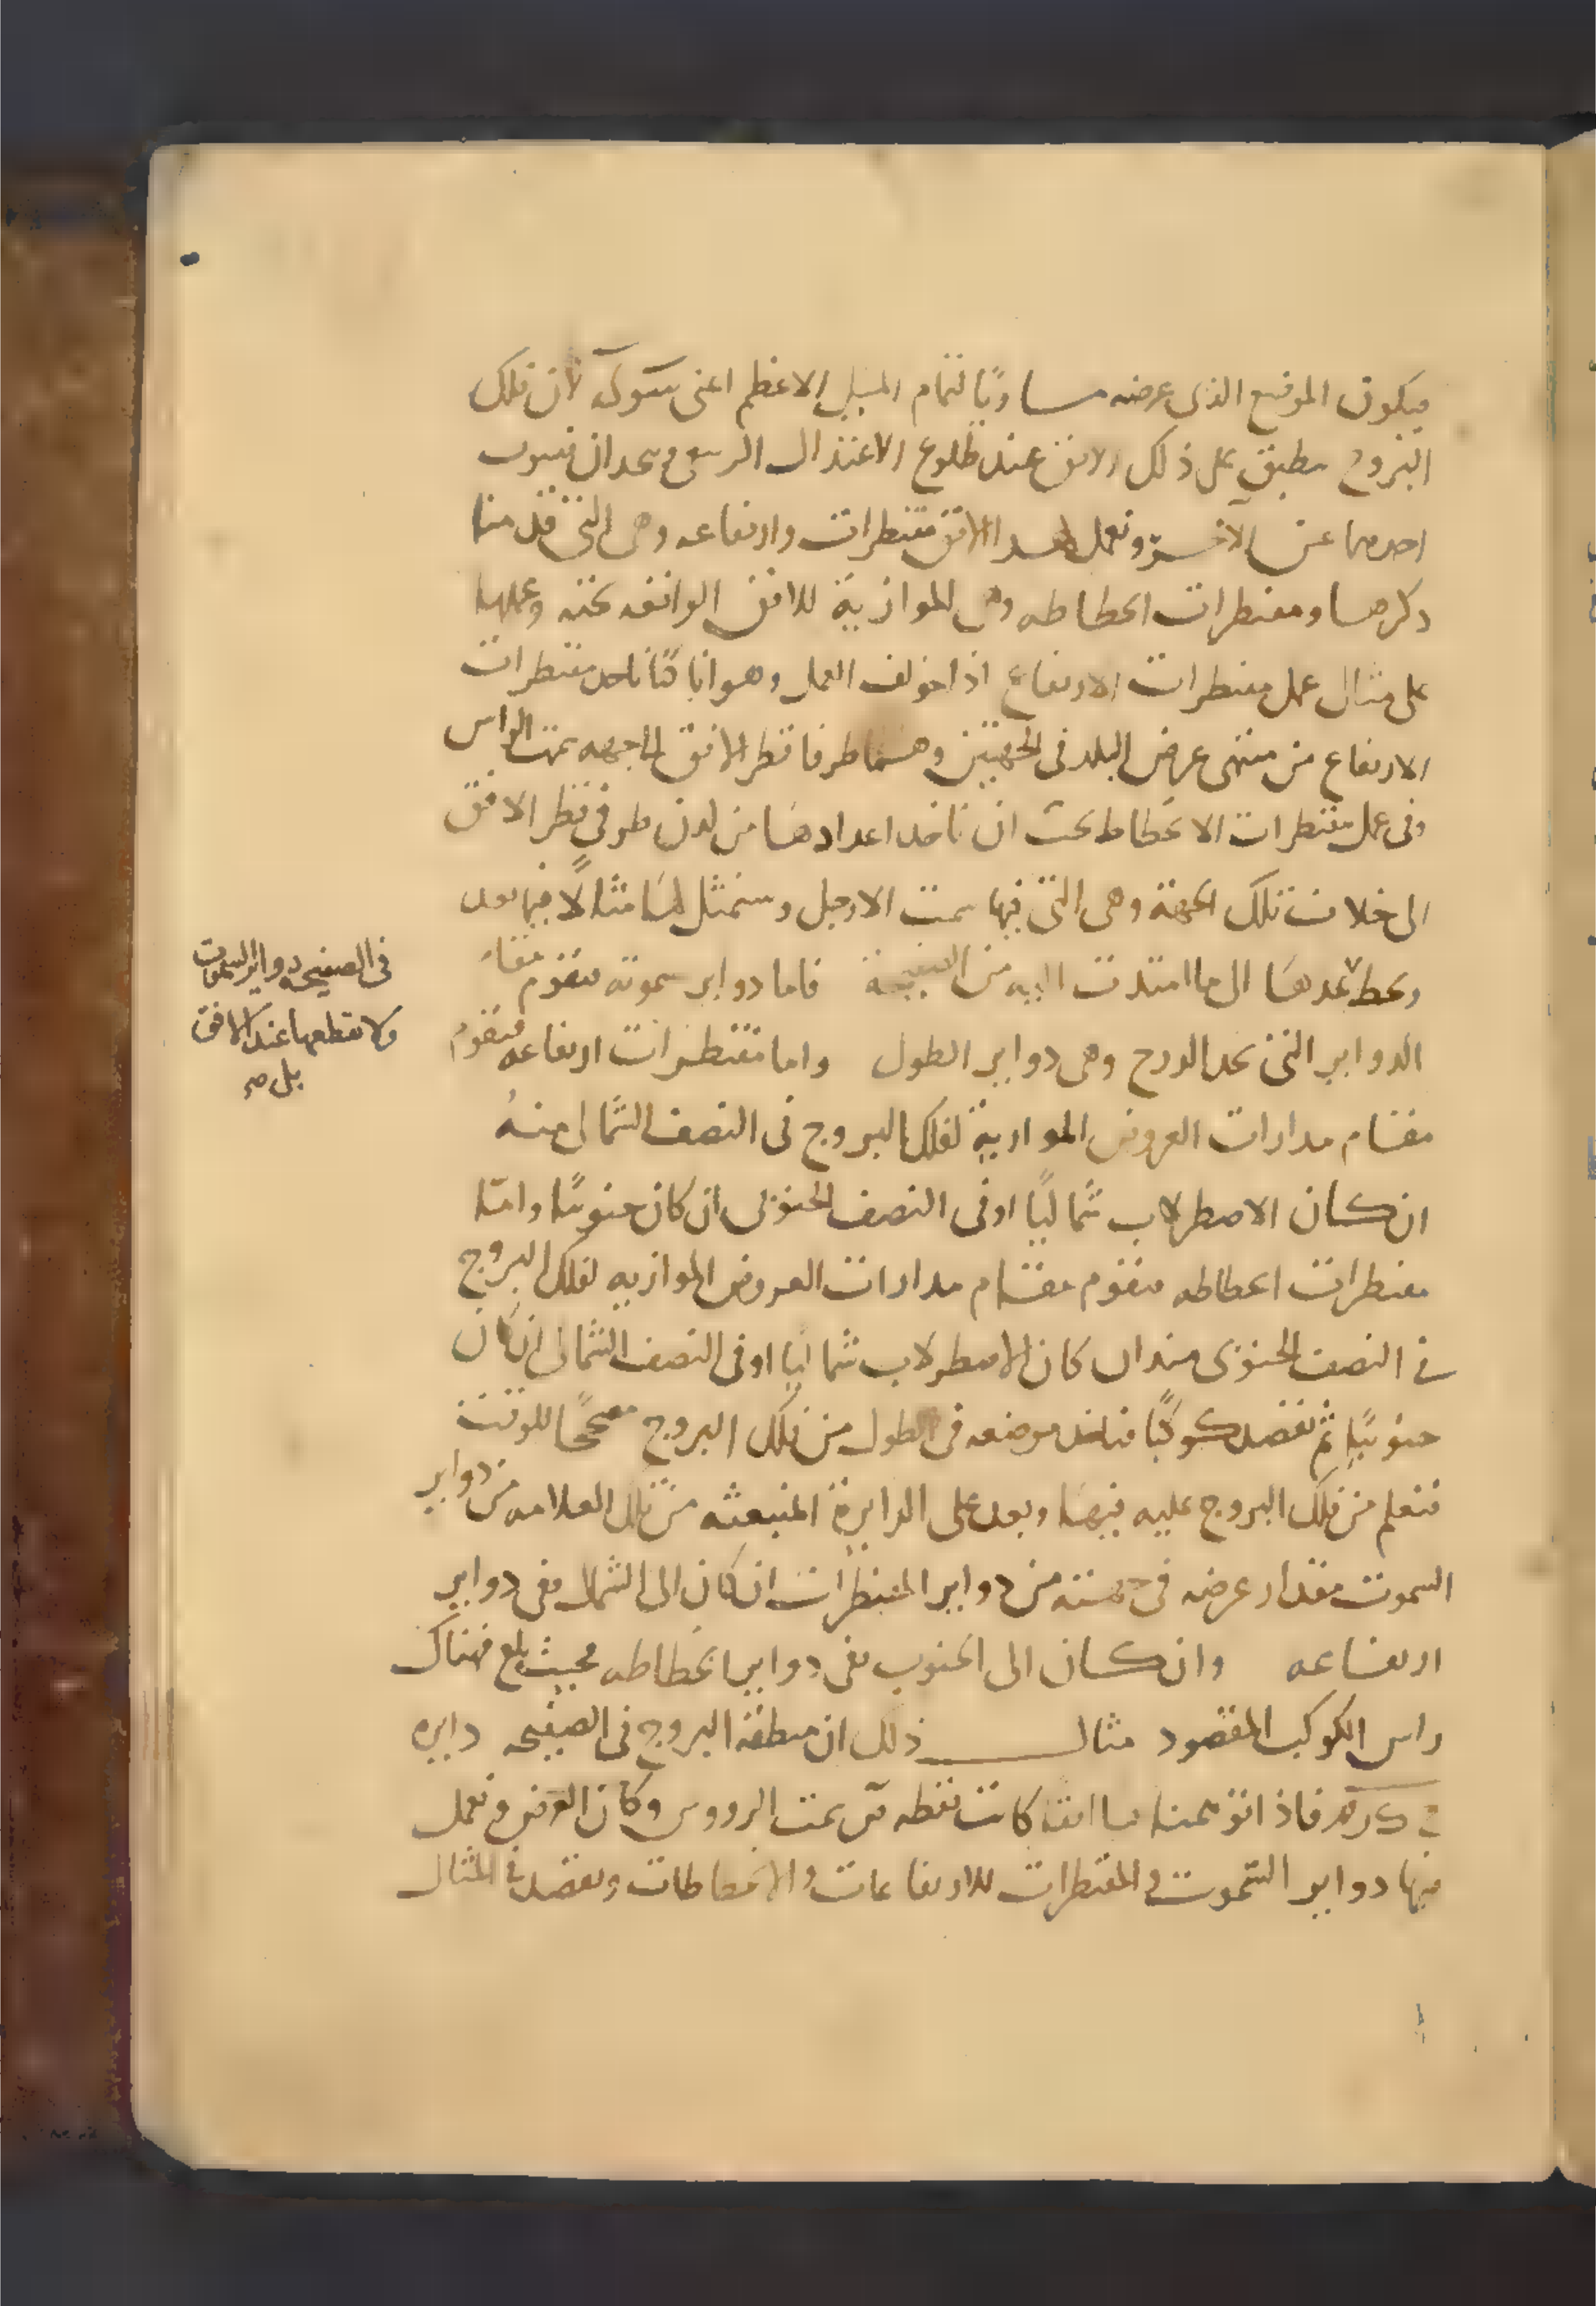 فيكون الموضع الذى عرضه مساويا لتمام الميل الاعظم اعنى سوكه لان فلك
البروج ينطبق على ذلك الافق عند طلوع الاعتدال الربيعى ويتحدان فينوب
احدهما عن الآخر ونعمل لهذا الافق مقنطرات وارتفاعه وهى التى قدمنا
ذكرها ومقنطرات انحطاطه وهى الموازية للافق الواقعه تحته وعملها
على مثال عمل مقنطرات الارتفاع اذا خولف العمل وهو انا كنا ناخذ مقنطرات
الارتفاع من منتهى عرض البلد فى الجهتين وهما طرفا قطر الافق الى جهه سمت الراس
وفى عمل مقنطرات الانحطاط يجب ان ناخذ اعدادها من لدن طرفى قطر الافق
الى خلاف تلك الجهة وهى التى فيها سمت الارجل وسنمثل لها مثالا فيما بعد
ونخط بعدها الى ما امتدت اليه من الصفيحة فاما دواير سموته فتقوم مقام
الدواير التى تحد الدرج وهى دواير الطول واما مقنطرات ارتفاعه فتقوم
مقام مدارات العروض الموازية لفلك البروج فى النصف الشمالى منه
ان كان الاصطرلاب شماليا او فى النصف الجنوبى ان كان جنوبيا واما
مقنطرات انحطاطه فتقوم مقام مدارات العروض الموازيه لفلك البروج
فى النصف الجنوبى منه ان كان الاصطرلاب شماليا او فى النصف الشمالى ان كان
جنوبيا ثم نقصد كوكبا فناخذ موضعه فى الطول من فلك البروج مصححا للوقت
فنعلم من فلك البروج عليه فيها ونعد على الدايرة المنبعثه من تلك العلامه من دواير
السموت مقدار عرضه فى جهته من دواير المقنطرات ان كان الى الشمال ففى دواير
ارتفاعه وان كان الى الجنوب ففى دواير انحطاطه فحيث بلغ فهناك
راس الكوكب المقصود مثال ذلك ان منطقة البروج فى الصفيحه دايره
فاذا توهمناها افقا كانت نقطه سمت الرووس وكان العرض ونعمل
فيها دواير السموت والمقنطرات للارتفاعات والانحطاطات ونقصد فى المثال
فى الصفيحه دواير السموت
ولا نقطعها عند الافق
بل